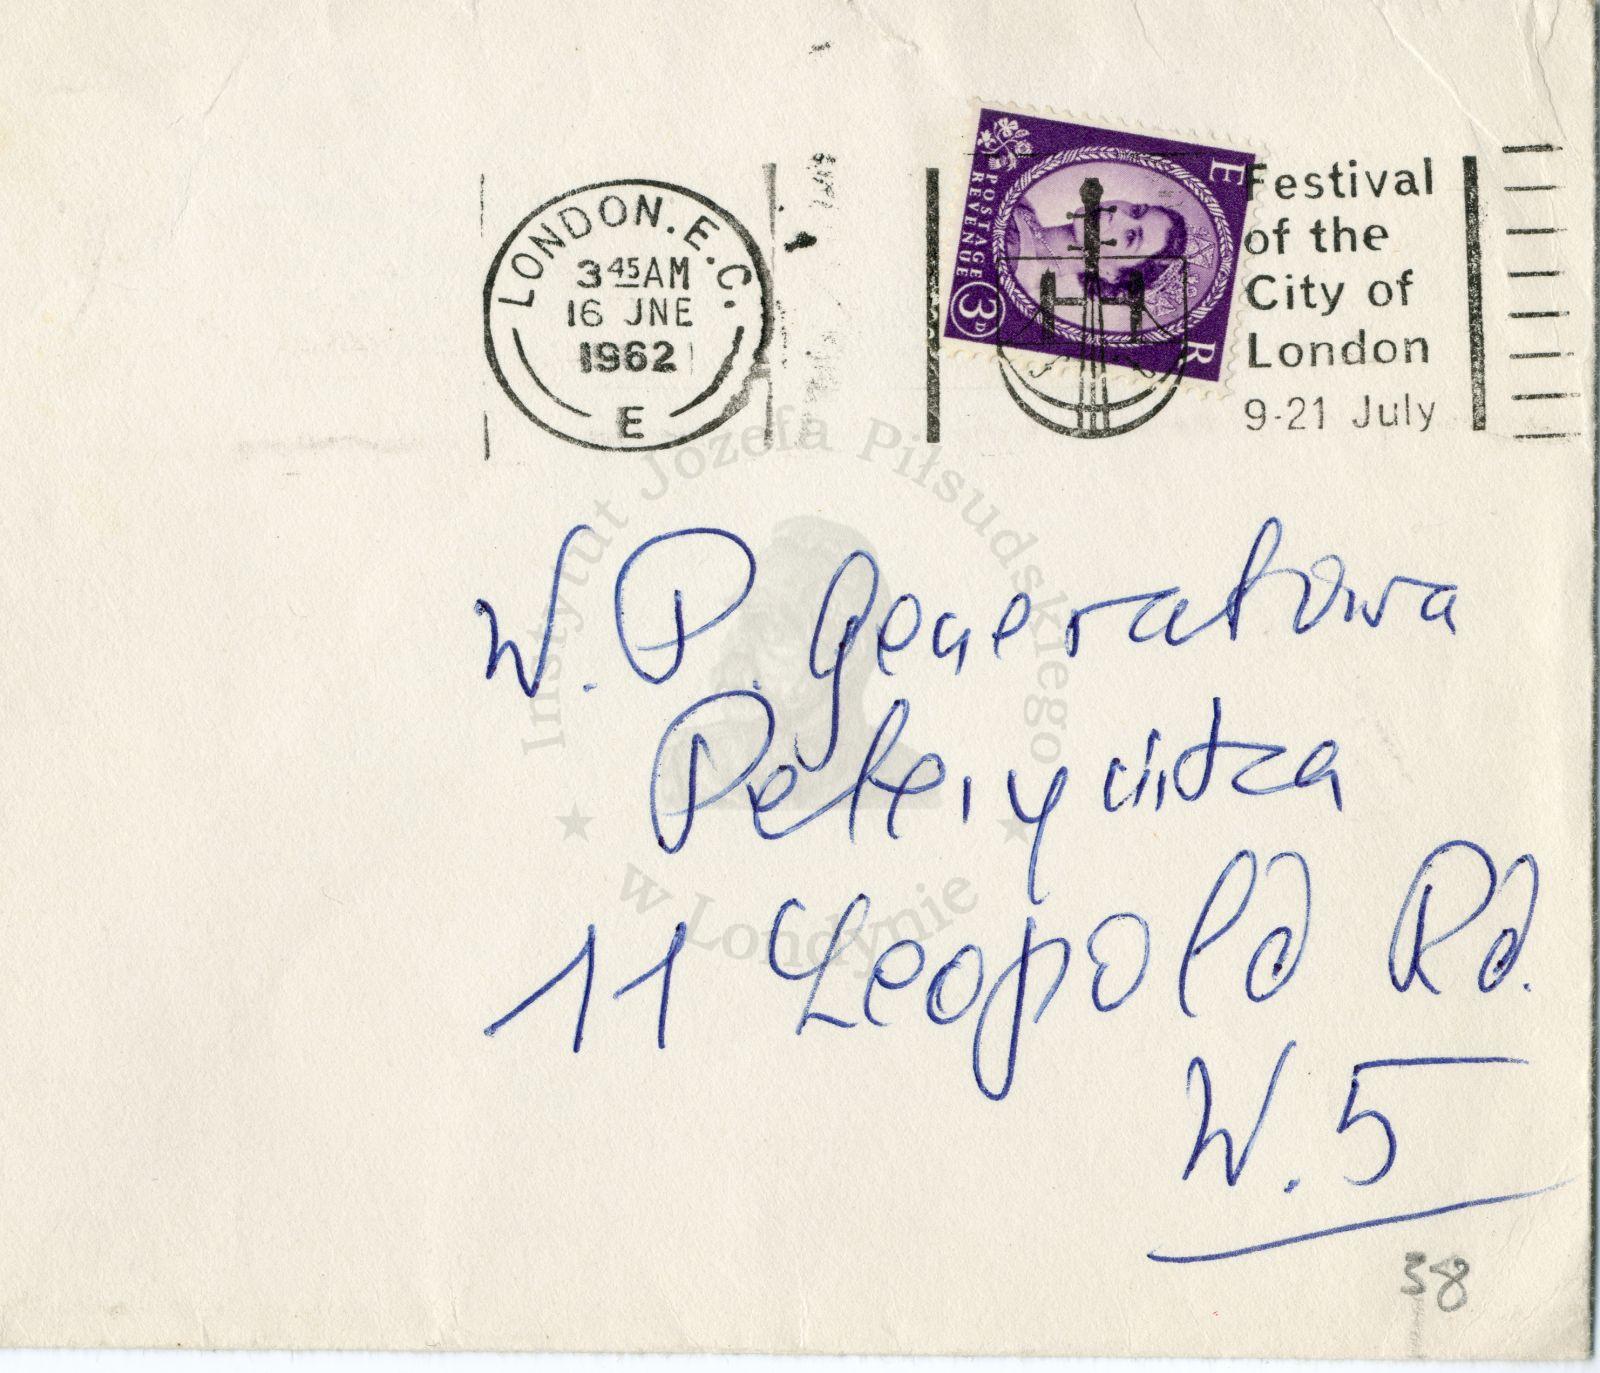 LONDON. E.C.
3 45 AM
16 JNE
1962
E
E R
POSTAGE
REVENUE
3D
Festival
of the
City of
London
9-21 July
Instytut Józefa Piłsudskiego
w Londynie
W. P. Generałowa
11 Leopold Rd.
W. 5
38